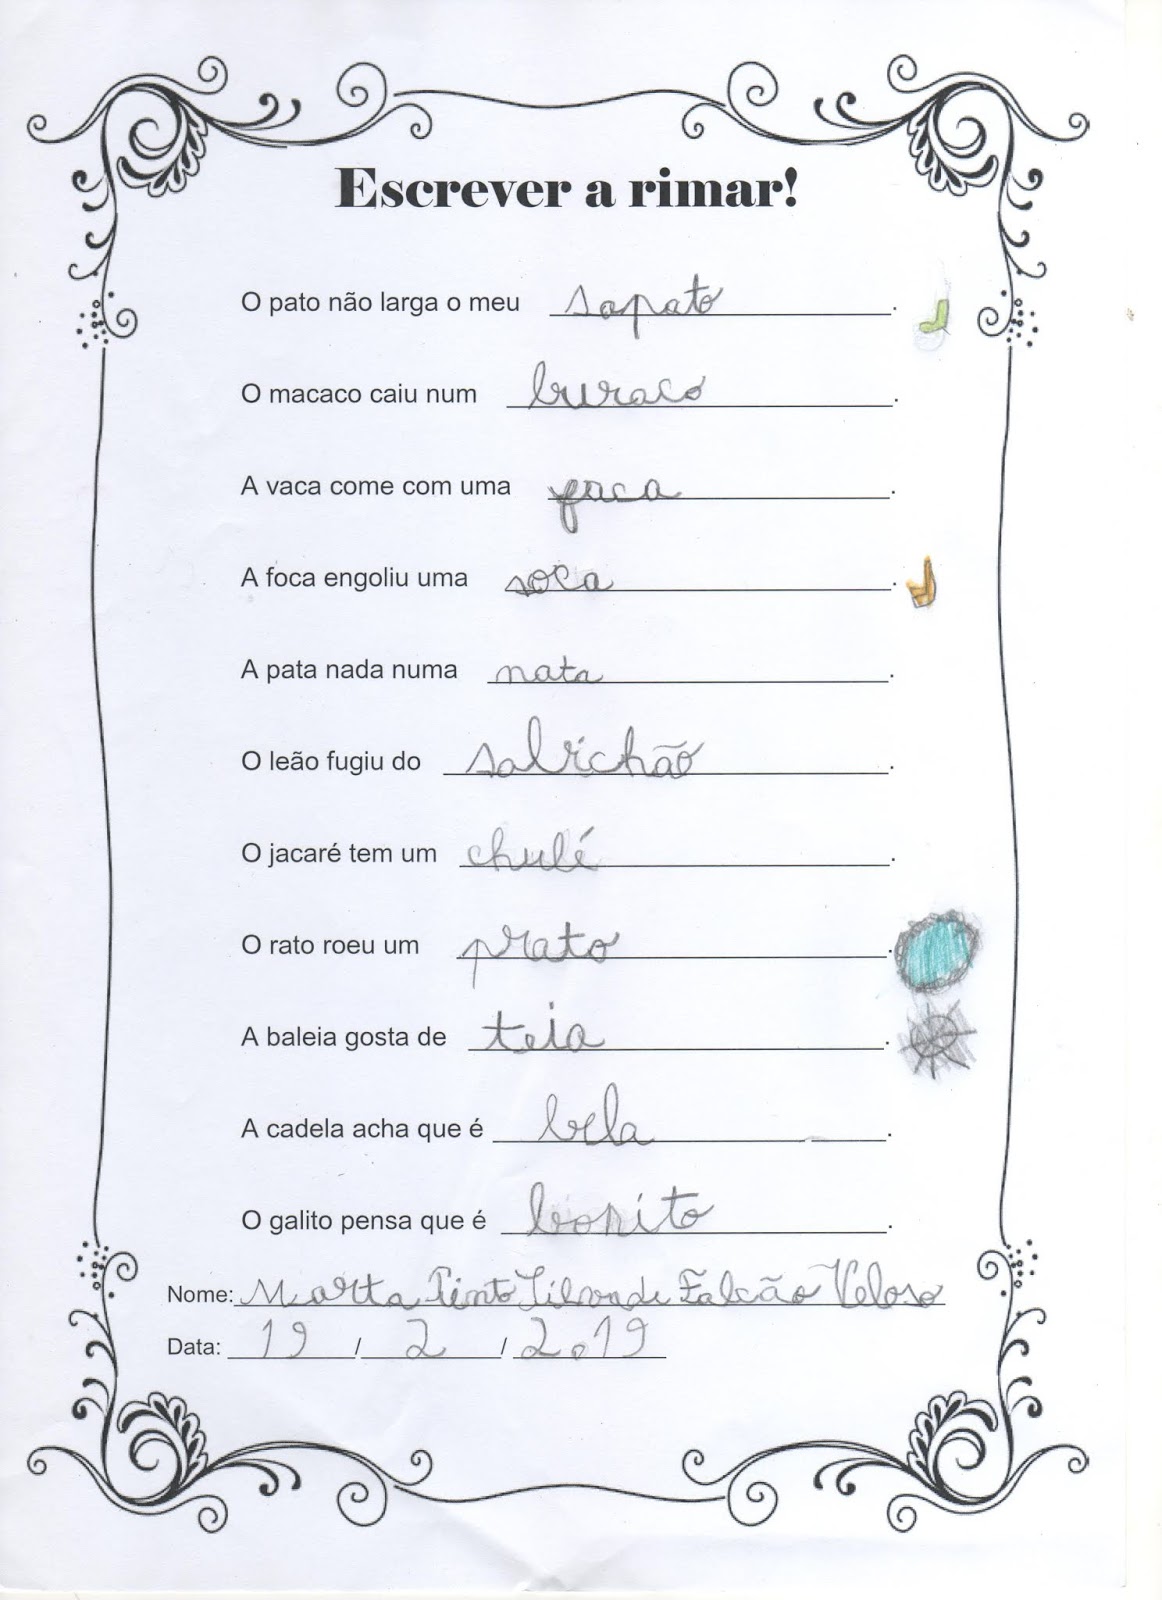 Escrever a rimar!
O pato não larga o meu sapato.
O macaco caiu num buraco.
A vaca come com uma faca.
A foca engoliu uma soca.
A pata nada numa nata.
O leão fugiu do salvichão.
O jacaré tem um chulé.
O rato roeu um prato.
A baleia gosta de teia.
A cadela acha que é bela.
O galito pensa que é bonito.
Nome: Marta Pinto Falcão Veloso
Data: 19 / 2 / 2019